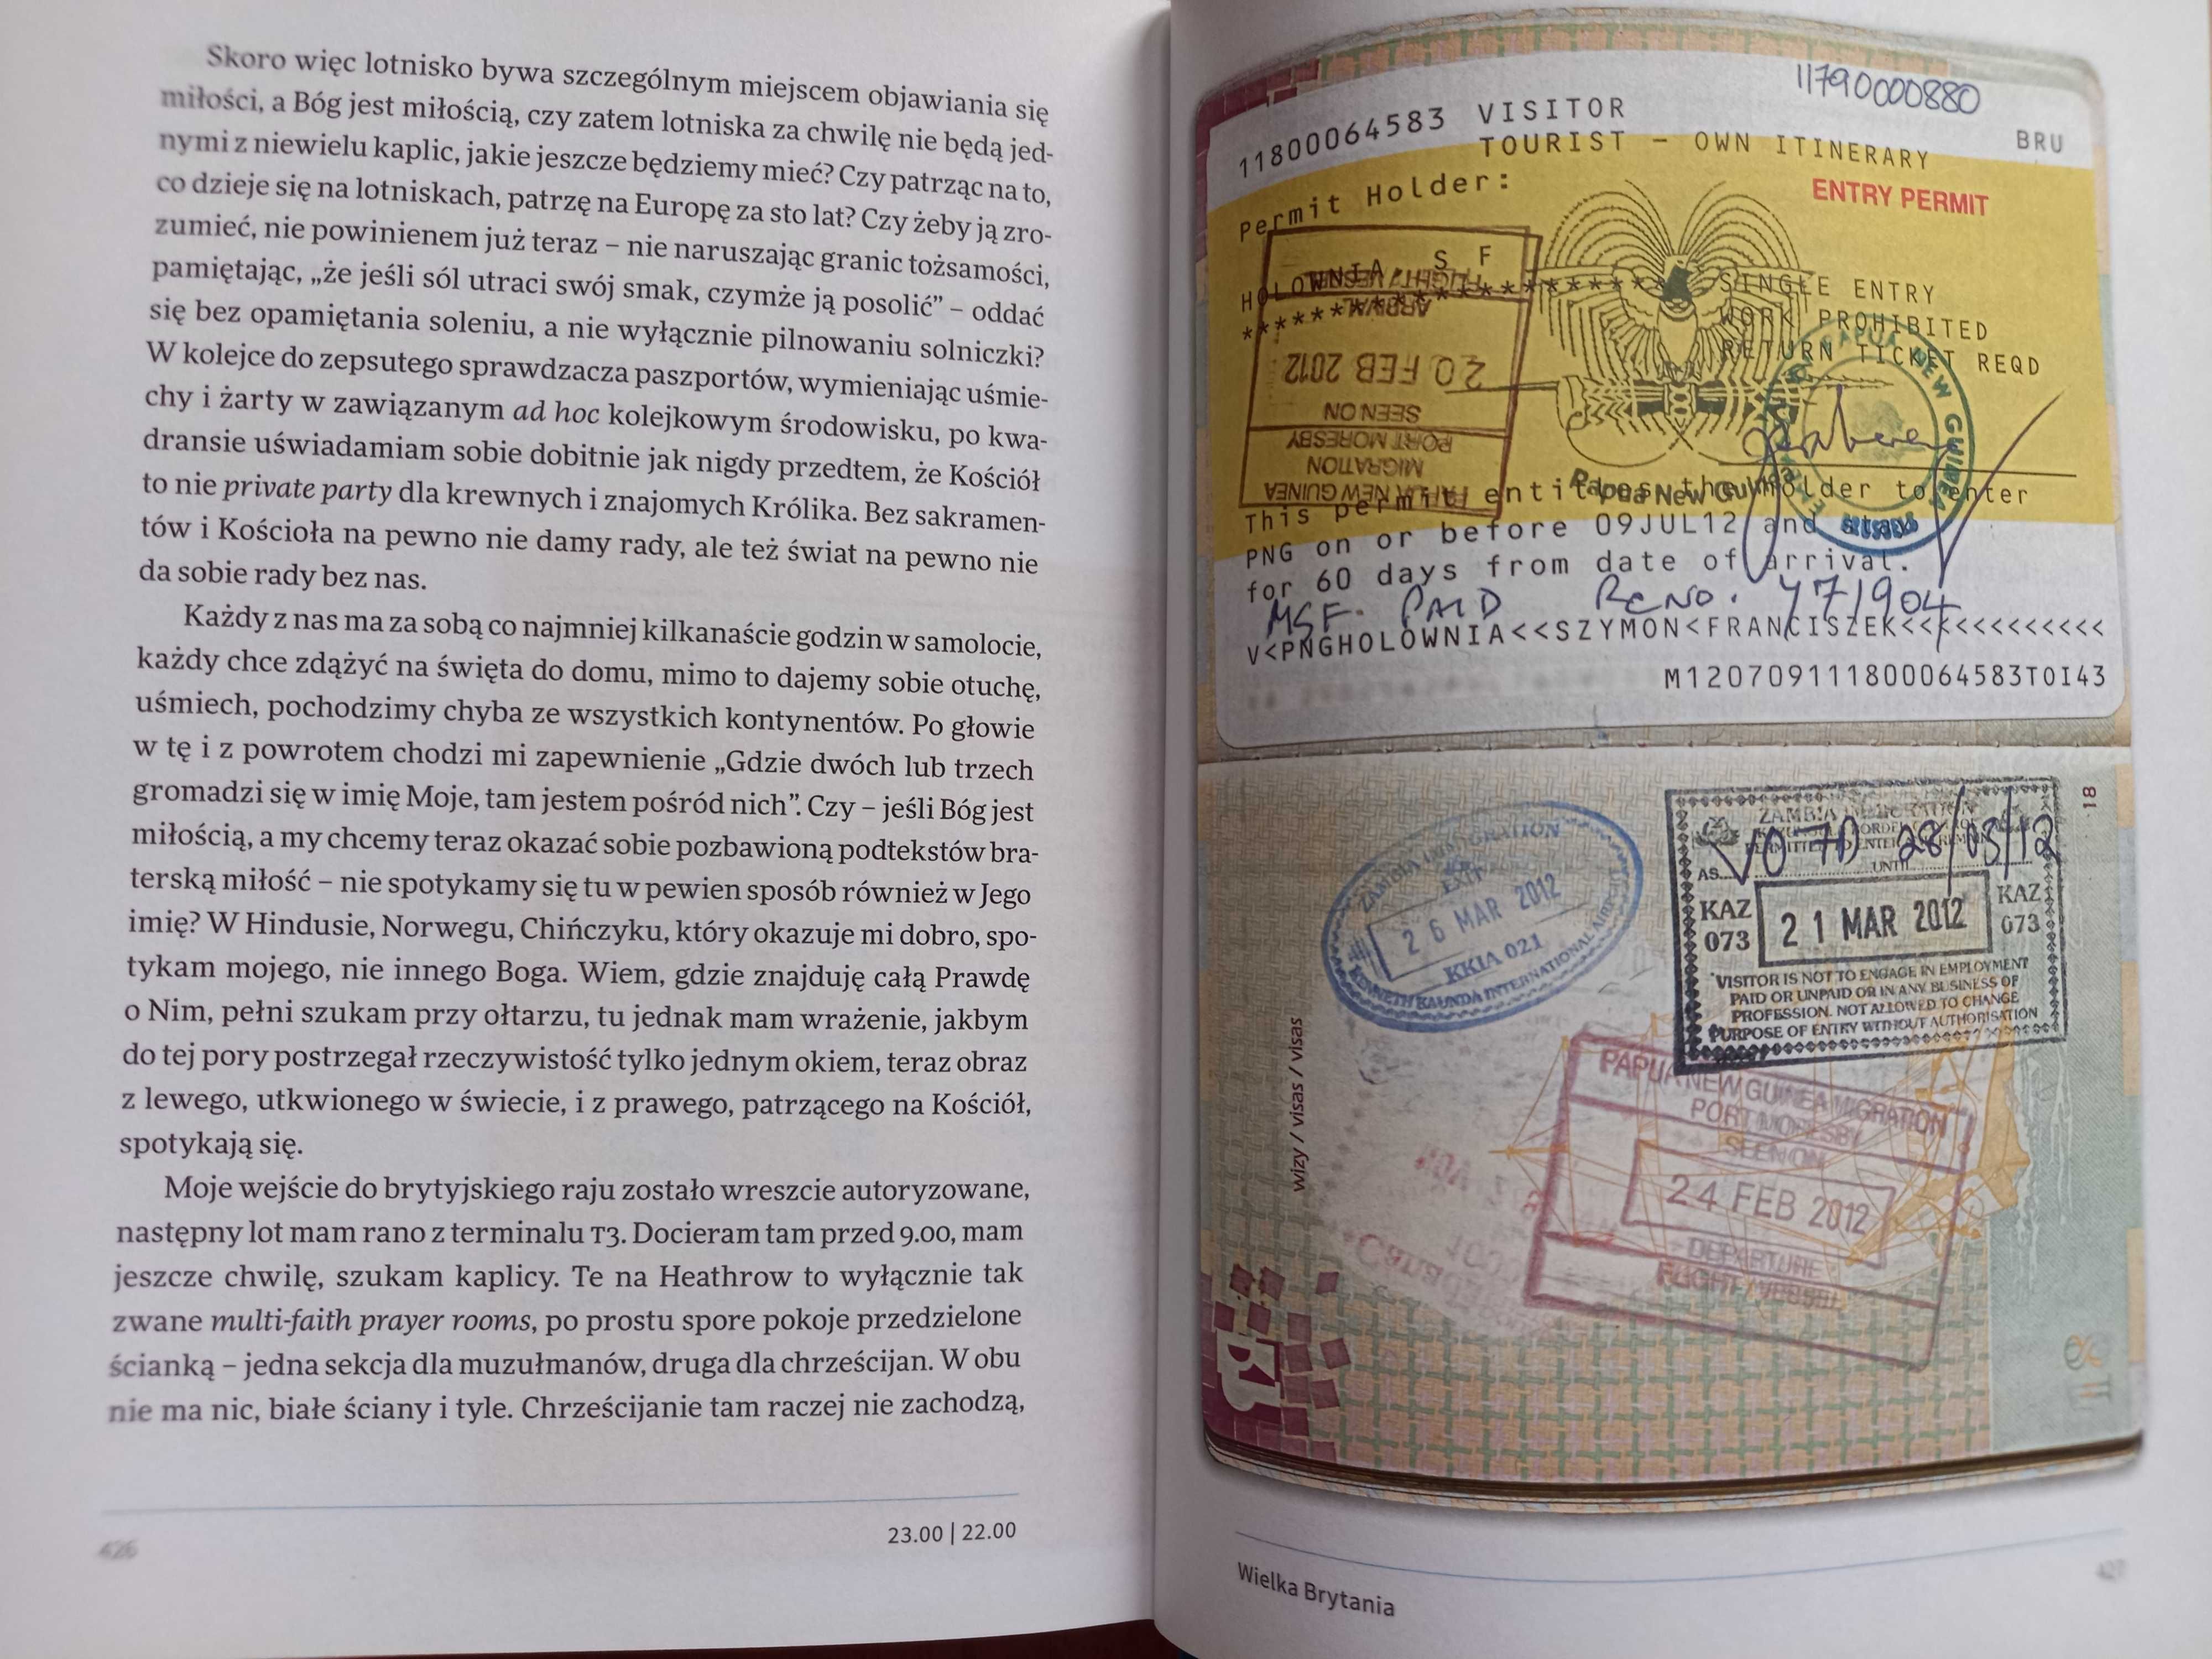 Skoro więc lotnisko bywa szczególnym miejscem objawiania się
miłości, a Bóg jest miłością, czy zatem lotniska za chwilę nie będą jed-
nymi z niewielu kaplic, jakie jeszcze będziemy mieć? Czy patrząc na to,
co dzieje się na lotniskach, patrzę na Europę za sto lat? Czy żeby ją zro-
zumieć, nie powinienem już teraz – nie naruszając granic tożsamości,
pamiętając, „że jeśli sól utraci swój smak, czymże ją posolić” – oddać
się bez opamiętania soleniu, a nie wyłącznie pilnowaniu solniczki?
W kolejce do zepsutego sprawdzacza paszportów, wymieniając uśmie-
chy i żarty w zawiązanym ad hoc kolejkowym środowisku, po kwa-
dransie uświadamiam sobie dobitnie jak nigdy przedtem, że Kościół
to nie private party dla krewnych i znajomych Królika. Bez sakramen-
tów i Kościoła na pewno nie damy rady, ale też świat na pewno nie
da sobie rady bez nas.
Każdy z nas ma za sobą co najmniej kilkanaście godzin w samolocie,
każdy chce zdążyć na święta do domu, mimo to dajemy sobie otuchę,
uśmiech, pochodzimy chyba ze wszystkich kontynentów. Po głowie
w tę i z powrotem chodzi mi zapewnienie „Gdzie dwóch lub trzech
gromadzi się w imię Moje, tam jestem pośród nich”. Czy – jeśli Bóg jest
miłością, a my chcemy teraz okazać sobie pozbawioną podtekstów bra-
terską miłość – nie spotykamy się tu w pewien sposób również w Jego
imię? W Hindusie, Norwegu, Chińczyku, który okazuje mi dobro, spo-
tykam mojego, nie innego Boga. Wiem, gdzie znajduję całą Prawdę
o Nim, pełni szukam przy ołtarzu, tu jednak mam wrażenie, jakbym
do tej pory postrzegał rzeczywistość tylko jednym okiem, teraz obraz
z lewego, utkwionego w świecie, i z prawego, patrzącego na Kościół,
spotykają się.
Moje wejście do brytyjskiego raju zostało wreszcie autoryzowane,
następny lot mam rano z terminalu T3. Docieram tam przed 9.00, mam
jeszcze chwilę, szukam kaplicy. Te na Heathrow to wyłącznie tak
zwane multi-faith prayer rooms, po prostu spore pokoje przedzielone
ścianką – jedna sekcja dla muzułmanów, druga dla chrześcijan. W obu
nie ma nic, białe ściany i tyle. Chrześcijanie tam raczej nie zachodzą,
23.00 | 22.00
426
11790000880
11800064583 VISITOR
BRU
TOURIST – OWN ITINERARY
ENTRY PERMIT
Permit Holder:
HOLOWNIA, S F
********************
SINGLE ENTRY
WORK PROHIBITED
RETURN TICKET REQD
FLIGHT / VESSEL
ARRIVAL
20 FEB 2012
SEEN ON
PORT MORESBY
MIGRATION
PAPUA NEW GUINEA
PAPUA NEW GUINEA
Papua New Guinea
This permit entitles the holder to enter
PNG on or before 09JUL12 and stay
for 60 days from date of arrival.
MSF. PAID RCNO. 471904
V<PNGHOLOWNIA<<SZYMON<FRANCISZEK<<<<<<<<<<<<
M120709111800064583T0I43
18
ZAMBIA IMMIGRATION
EXIT
26 MAR 2012
KKIA 021
KENNETH KAUNDA INTERNATIONAL AIRPORT
ZAMBIA IMMIGRATION
VO 7D 28/03/12
AS UNTIL
KAZ 073
21 MAR 2012
KAZ 073
VISITOR IS NOT TO ENGAGE IN EMPLOYMENT
PAID OR UNPAID OR IN ANY BUSINESS OF
PROFESSION. NOT ALLOWED TO CHANGE
PURPOSE OF ENTRY WITHOUT AUTHORISATION
wizy / visas / visas
PAPUA NEW GUINEA MIGRATION
PORT MORESBY
SEEN ON
24 FEB 2012
DEPARTURE
FLIGHT / VESSEL
18
Wielka Brytania
427